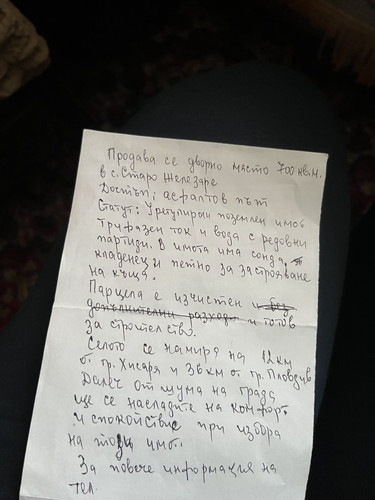 Продава се дворно място 700 кв.м.
в с. Старо Железаре
Достъп: асфалтов път
Статут: Урегулиран поземлен имот
Трифазен ток и вода с редовни
партиди. В имота има сонда,
кладенец и петно за застрояване
на къща.
Парцела е изчистен и без
допълнителни разходи и готов
за строителство.
Селото се намира на 12 км
от гр. Хисаря и 36 км от гр. Пловдив
Далеч от шума на града
ще се насладите на комфорт
и спокойствие при избора
на този имот.
За повече информация на
тел.